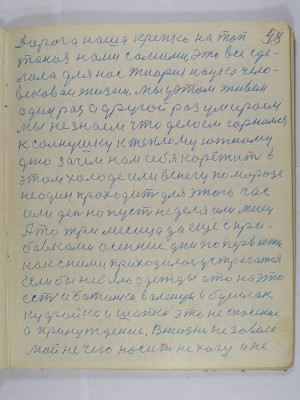 98
Дорога наша крепко на тот
такая нами самими, это все сде-
лала для нас теория наука чело-
веческой жизни, мы этом живем
один раз а другой раз умираем
мы не знаем что делаем гарнемся
к солнушку к теплому южному
дню зачем нам себя корежит в
этом холоде или в снегу по морозе
не один проходит для этого час
или ден но пуст неделя или месец
А то три месеца да еще с при-
бавками осенние дни по первости
как с ними приходилос устречатся
если бы не было одежды а то на это
есть и ботинки валенци и
кудройка и шапка это не спасение
а принуждение. В жизни не завсе
мой нечего носить не хочу и не